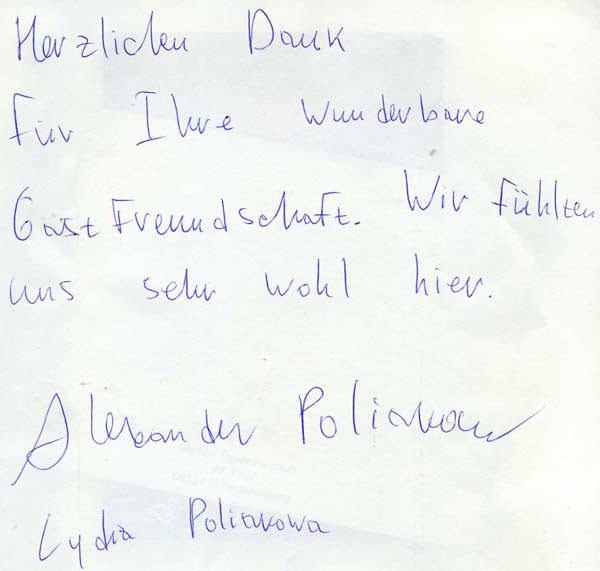 Herzlichen Dank
Für Ihre wunderbare
GastFreundschaft. Wir fühlten
uns sehr wohl hier.
Alexander Poliakow
Lydia Poliakowa